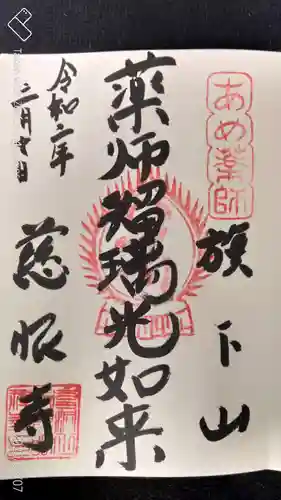 あめ薬師
旗下山
薬師瑠璃光如来
令和二年
二月十日
慈眼寺